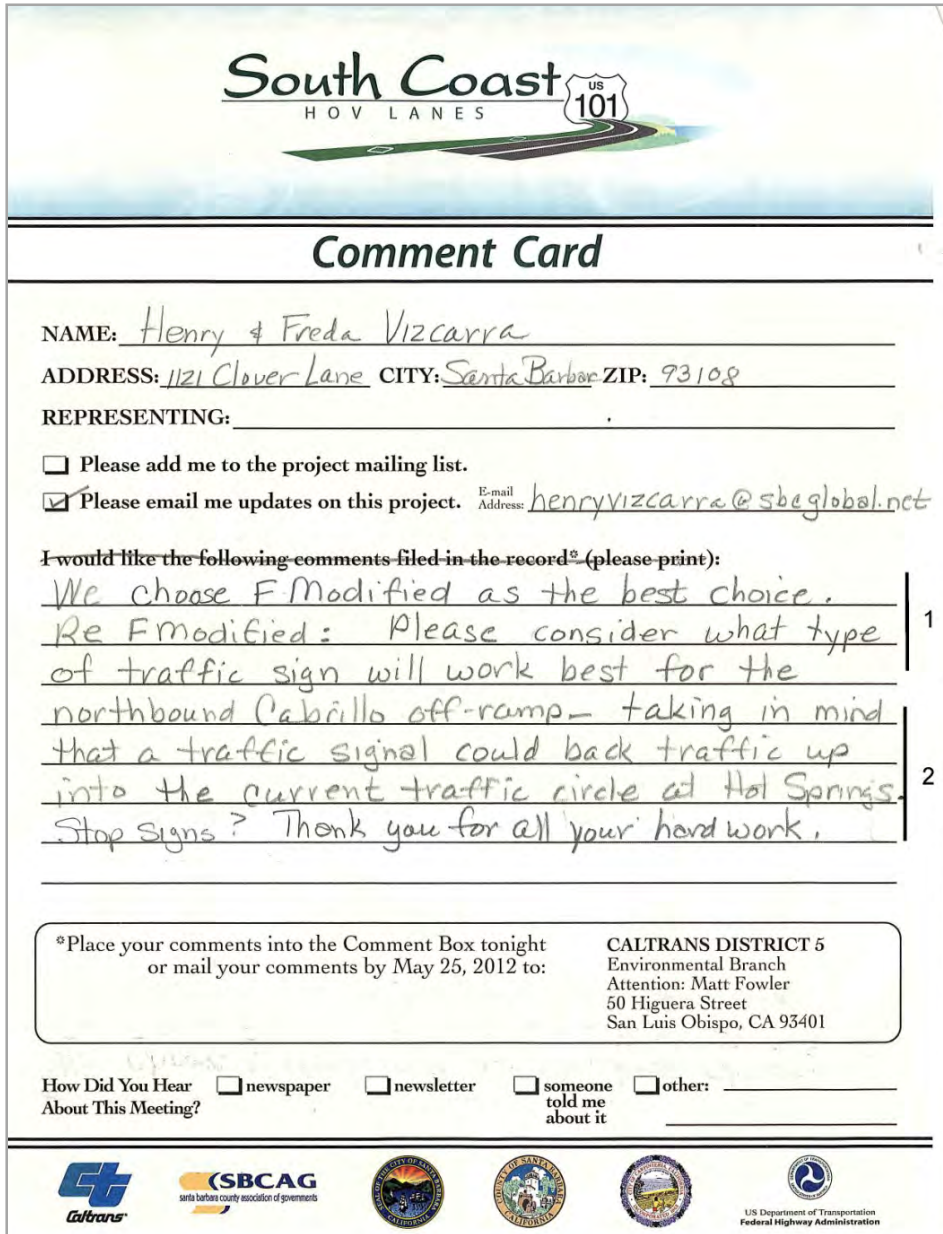 South Coast
HOV LANES
US
101
Comment Card
NAME: Henry & Freda Vizcarra
ADDRESS: 1121 Clover Lane CITY: Santa Barbar ZIP: 93108
REPRESENTING:
Please add me to the project mailing list.
Please email me updates on this project. E-mail Address: henryvizcarra@sbcglobal.net
I would like the following comments filed in the record* (please print):
We choose F Modified as the best choice.
Re F Modified: Please consider what type
of traffic sign will work best for the
northbound Cabrillo off-ramp - taking in mind
that a traffic signal could back traffic up
into the current traffic circle at Hot Springs.
Stop Signs? Thank you for all your hard work.
1
2
*Place your comments into the Comment Box tonight
or mail your comments by May 25, 2012 to:
CALTRANS DISTRICT 5
Environmental Branch
Attention: Matt Fowler
50 Higuera Street
San Luis Obispo, CA 93401
How Did You Hear
About This Meeting?
newspaper
newsletter
someone
told me
about it
other:
Caltrans
SBCAG
santa barbara county association of governments
US Department of Transportation
Federal Highway Administration